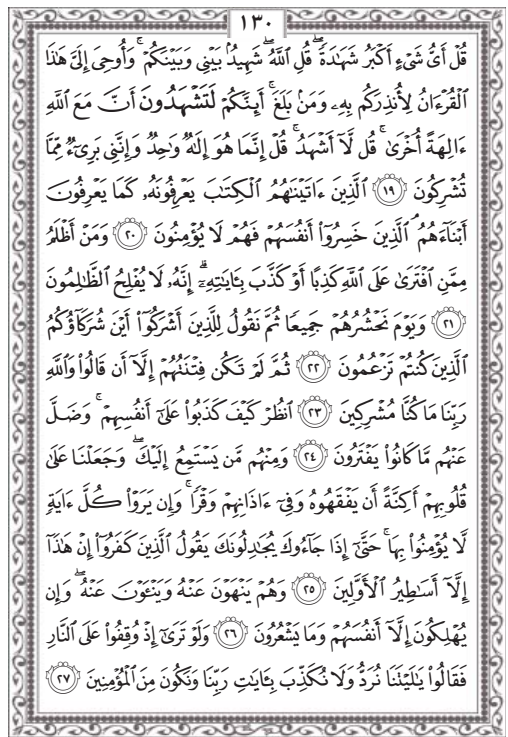 ١٣٠
قُلْ أَىُّ شَىْءٍ أَكْبَرُ شَهَٰدَةً ۖ قُلِ ٱللَّهُ ۖ شَهِيدٌۢ بَيْنِى وَبَيْنَكُمْ ۚ وَأُوحِىَ إِلَىَّ هَٰذَا
ٱلْقُرْءَانُ لِأُنذِرَكُم بِهِۦ وَمَنۢ بَلَغَ ۚ أَئِنَّكُمْ لَتَشْهَدُونَ أَنَّ مَعَ ٱللَّهِ
ءَالِهَةً أُخْرَىٰ ۚ قُل لَّآ أَشْهَدُ ۚ قُلْ إِنَّمَا هُوَ إِلَٰهٌ وَٰحِدٌ وَإِنَّنِى بَرِىٓءٌ مِّمَّا
تُشْرِكُونَ ١٩ ٱلَّذِينَ ءَاتَيْنَٰهُمُ ٱلْكِتَٰبَ يَعْرِفُونَهُۥ كَمَا يَعْرِفُونَ
أَبْنَآءَهُمُ ۘ ٱلَّذِينَ خَسِرُوٓا۟ أَنفُسَهُمْ فَهُمْ لَا يُؤْمِنُونَ ٢٠ وَمَنْ أَظْلَمُ
مِمَّنِ ٱفْتَرَىٰ عَلَى ٱللَّهِ كَذِبًا أَوْ كَذَّبَ بِـَٔايَٰتِهِۦٓ ۗ إِنَّهُۥ لَا يُفْلِحُ ٱلظَّٰلِمُونَ
٢١ وَيَوْمَ نَحْشُرُهُمْ جَمِيعًا ثُمَّ نَقُولُ لِلَّذِينَ أَشْرَكُوٓا۟ أَيْنَ شُرَكَآؤُكُمُ
ٱلَّذِينَ كُنتُمْ تَزْعُمُونَ ٢٢ ثُمَّ لَمْ تَكُن فِتْنَتُهُمْ إِلَّآ أَن قَالُوا۟ وَٱللَّهِ
رَبِّنَا مَا كُنَّا مُشْرِكِينَ ٢٣ ٱنظُرْ كَيْفَ كَذَبُوا۟ عَلَىٰٓ أَنفُسِهِمْ ۚ وَضَلَّ
عَنْهُم مَّا كَانُوا۟ يَفْتَرُونَ ٢٤ وَمِنْهُم مَّن يَسْتَمِعُ إِلَيْكَ ۖ وَجَعَلْنَا عَلَىٰ
قُلُوبِهِمْ أَكِنَّةً أَن يَفْقَهُوهُ وَفِىٓ ءَاذَانِهِمْ وَقْرًا ۚ وَإِن يَرَوْا۟ كُلَّ ءَايَةٍ
لَّا يُؤْمِنُوا۟ بِهَا ۚ حَتَّىٰٓ إِذَا جَآءُوكَ يُجَٰدِلُونَكَ يَقُولُ ٱلَّذِينَ كَفَرُوٓا۟ إِنْ هَٰذَآ
إِلَّآ أَسَٰطِيرُ ٱلْأَوَّلِينَ ٢٥ وَهُمْ يَنْهَوْنَ عَنْهُ وَيَنْـَٔوْنَ عَنْهُ ۖ وَإِن
يُهْلِكُونَ إِلَّآ أَنفُسَهُمْ وَمَا يَشْعُرُونَ ٢٦ وَلَوْ تَرَىٰٓ إِذْ وُقِفُوا۟ عَلَى ٱلنَّارِ
فَقَالُوا۟ يَٰلَيْتَنَا نُرَدُّ وَلَا نُكَذِّبَ بِـَٔايَٰتِ رَبِّنَا وَنَكُونَ مِنَ ٱلْمُؤْمِنِينَ ٢٧